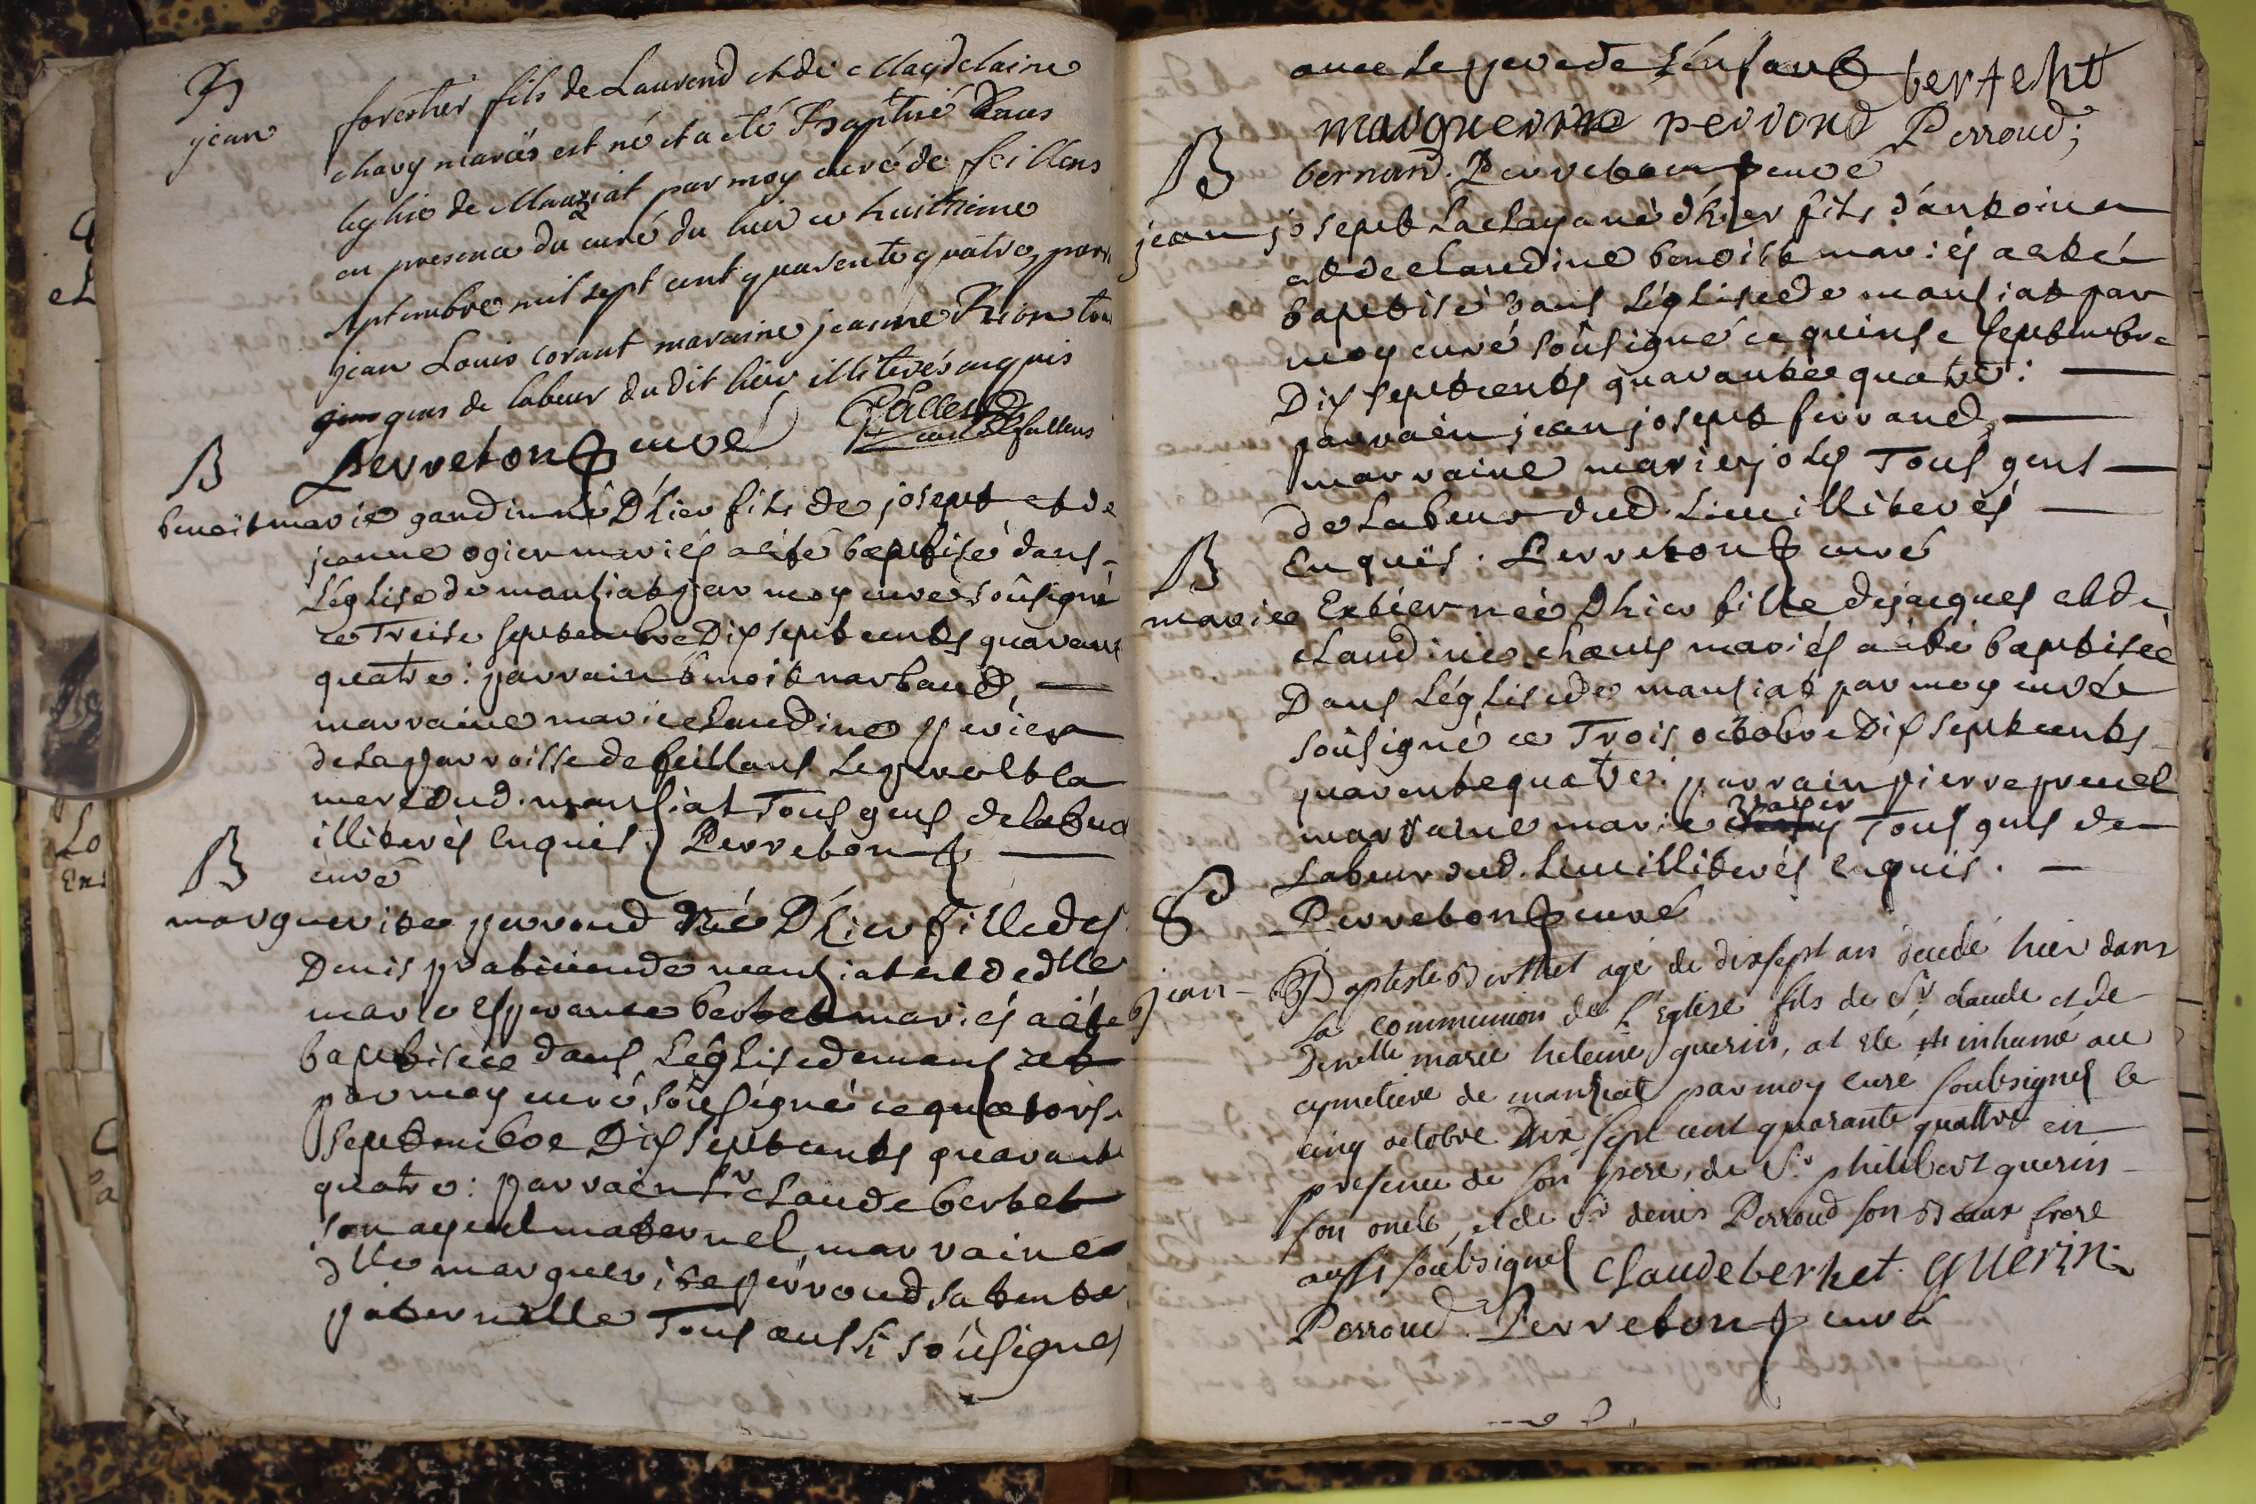 B
jean forestier fils de Laurend et de Magdelaine
chavy mariés est né et a été Baptisé dans
leglise de Manziat par moy curé de feillens
en presence du curé du lieu ce huitieme
septembre mil sept cent quarente quatre, parr
jean Louis corant maraine jeanne Brion tou
gens de labeur du dit lieu illiterés enquis
Perreton curé
B
benoit marie gaudin né D'hier fils de josept et de
jeanne ogier mariés a été baptisé dans
L'église de manziat par moy curé soûsigné
ce Treise septembre Dix sept cents quarant
quatre: parrain benoit narbaud,
marraine marie claudine perier
de la parroisse de feillans le pere et la
mere dud. manziat Tous gens de labeur
illiterés enquis. Perreton
curé
B
marguerite perroud née D'hier fille de s.
Denis praticien de manziat et de dlle
marie esperance berthet mariés a été
baptisée dans L'église de manziat
par moy curé soûsigné ce quatorse
septembre Dix sept cents quarante
quatre: parrain sr claude berthet
son ayeul maternel, marraine
dlle marguerite perroud sa tente
paternelle Tous aussi soûsignes
avec le pere de L'enfant berteht
marguerite perroud Perroud;
bernard. Perreton curé
B
jean josept Laclaya né d'hier fils d'antoine
et de claudine benoist mariés a eté
baptisé dans L'église de manziat par
moy curé soûsigné ce quinse septembre
Dix sept cents quarante quatre:
parrain jean josept ferrand,
marraine marie joly Tous gens
de labeur dud. Lieu illiterés
Enquis. Perreton curé
B
marie Extier née D'hier fille de jacques et de
claudine chanel mariés a été baptisée
Dans L'église de manziat par moy curé
soûsigné ce Trois octobre Dix sept cents
quarante quatre: parrain pierre pruel
marraine marie Tous gens de
Labeur dud. Lieu illiterés enquis.
Perreton curé
Sd
jean - Baptiste Berthet agé de dix sept ans decedé hier dans
La communion de L'Eglise fils de Sr claude et de
Demelle marie heleine guerin, at ete inhumé au
cymetiere de manziat par moy curé soubsignés le
cinq octobre Dix sept cent quarante quattre en
presence de son pere, de Sr philibert guerin
son oncle, et de Sr denis Perroud son Beaux frere
aussi soubsignés Claude berhet Guerin
Perroud. Perreton curé